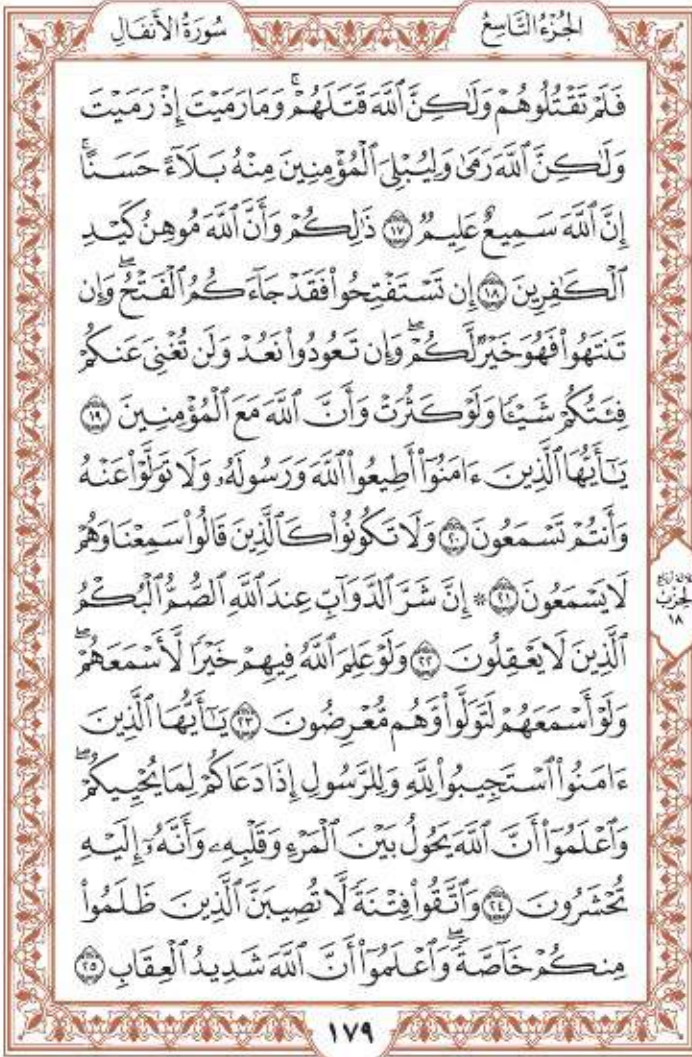 الجُزْءُ التَّاسِعُ
سُورَةُ الأَنفَالِ
فَلَمْ تَقْتُلُوهُمْ وَلَٰكِنَّ ٱللَّهَ قَتَلَهُمْۚ وَمَا رَمَيْتَ إِذْ رَمَيْتَ
وَلَٰكِنَّ ٱللَّهَ رَمَىٰ وَلِيُبْلِيَ ٱلْمُؤْمِنِينَ مِنْهُ بَلَآءً حَسَنًاۚ
إِنَّ ٱللَّهَ سَمِيعٌ عَلِيمٌ ۝١٧ ذَٰلِكُمْ وَأَنَّ ٱللَّهَ مُوهِنُ كَيْدِ
ٱلْكَٰفِرِينَ ۝١٨ إِن تَسْتَفْتِحُوا۟ فَقَدْ جَآءَكُمُ ٱلْفَتْحُۖ وَإِن
تَنتَهُوا۟ فَهُوَ خَيْرٌ لَّكُمْۖ وَإِن تَعُودُوا۟ نَعُدْ وَلَن تُغْنِيَ عَنكُمْ
فِئَتُكُمْ شَيْـًٔا وَلَوْ كَثُرَتْ وَأَنَّ ٱللَّهَ مَعَ ٱلْمُؤْمِنِينَ ۝١٩
يَٰٓأَيُّهَا ٱلَّذِينَ ءَامَنُوٓا۟ أَطِيعُوا۟ ٱللَّهَ وَرَسُولَهُۥ وَلَا تَوَلَّوْا۟ عَنْهُ
وَأَنتُمْ تَسْمَعُونَ ۝٢٠ وَلَا تَكُونُوا۟ كَٱلَّذِينَ قَالُوا۟ سَمِعْنَا وَهُمْ
لَا يَسْمَعُونَ ۝٢١ ۞ إِنَّ شَرَّ ٱلدَّوَآبِّ عِندَ ٱللَّهِ ٱلصُّمُّ ٱلْبُكْمُ
ٱلَّذِينَ لَا يَعْقِلُونَ ۝٢٢ وَلَوْ عَلِمَ ٱللَّهُ فِيهِمْ خَيْرًا لَّأَسْمَعَهُمْۖ
وَلَوْ أَسْمَعَهُمْ لَتَوَلَّوا۟ وَّهُم مُّعْرِضُونَ ۝٢٣ يَٰٓأَيُّهَا ٱلَّذِينَ
ءَامَنُوا۟ ٱسْتَجِيبُوا۟ لِلَّهِ وَلِلرَّسُولِ إِذَا دَعَاكُمْ لِمَا يُحْيِيكُمْۖ
وَٱعْلَمُوٓا۟ أَنَّ ٱللَّهَ يَحُولُ بَيْنَ ٱلْمَرْءِ وَقَلْبِهِۦ وَأَنَّهُۥٓ إِلَيْهِ
تُحْشَرُونَ ۝٢٤ وَٱتَّقُوا۟ فِتْنَةً لَّا تُصِيبَنَّ ٱلَّذِينَ ظَلَمُوا۟
مِنكُمْ خَآصَّةًۖ وَٱعْلَمُوٓا۟ أَنَّ ٱللَّهَ شَدِيدُ ٱلْعِقَابِ ۝٢٥
الحزب
١٨
١٧٩